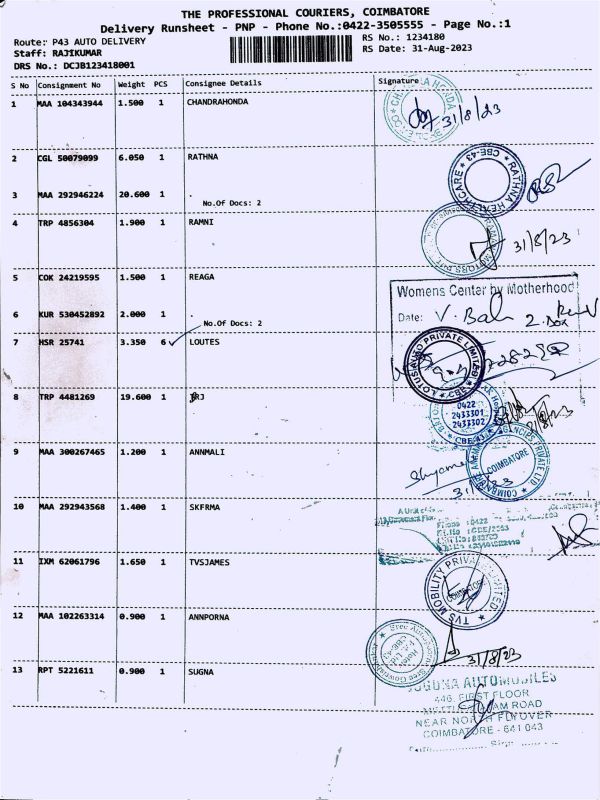 THE PROFESSIONAL COURIERS, COIMBATORE
Delivery Runsheet - PNP - Phone No.:0422-3505555 - Page No.:1
Route: P43 AUTO DELIVERY
RS No.: 1234180
Staff: RAJIKUMAR
RS Date: 31-Aug-2023
DRS No.: DCJB123418001
S No Consignment No Weight PCS Consignee Details Signature
1 MAA 104343944 1.500 1 CHANDRAHONDA
31/8/23
2 CGL 50079099 6.050 1 RATHNA
RATHNA HEALTHCARE CBE-43
3 MAA 292946224 20.600 1 .
No.Of Docs: 2
4 TRP 4856304 1.900 1 RAMNI
31/8/23
5 COK 24219595 1.500 1 REAGA
Womens Center by Motherhood
Date: V. Bal
2. Box
6 KUR 530452892 2.000 1 .
No.Of Docs: 2
7 HSR 25741 3.350 6 LOUTES
LOTUS PRIVATE LIMITED CBE
8 TRP 4481269 19.600 1 JRJ
0422
2433301
2433302
CBE-43
31/8/23
9 MAA 300267465 1.200 1 ANNMALI
AGENCIES PRIVATE LTD
COIMBATORE
10 MAA 292943568 1.400 1 SKFRMA
Phone : 0422
11 IXM 62061796 1.650 1 TVSJAMES
TVS MOBILITY PRIVATE LIMITED
COIMBATORE
12 MAA 102263314 0.900 1 ANNPORNA
31/8/23
13 RPT 5221611 0.900 1 SUGNA
SUGUNA AUTOMOBILES
446, FIRST FLOOR
METTUPALAYAM ROAD
NEAR NORTH FLYOVER
COIMBATORE - 641 043